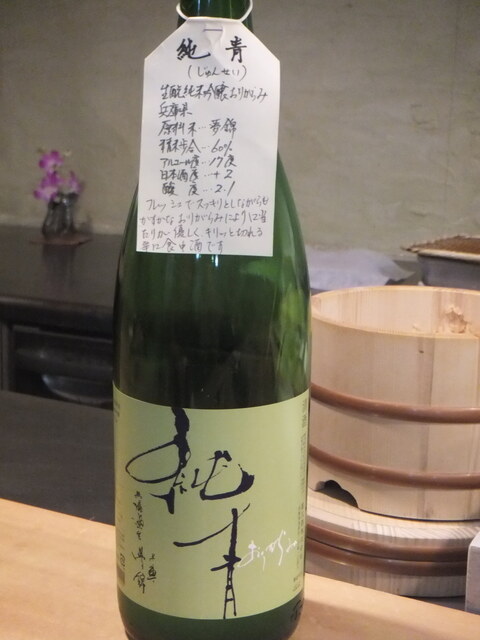 純青
(じゅんせい)
生酛純米吟醸おりがらみ
兵庫県
原料米…夢錦
精米歩合…60%
アルコール度…17度
日本酒度…+2
酸度…2.1
フレッシュでスッキリとしながらも
かすかなおりがらみにより口当
たりか優しく、キリーッと切れる
辛口食中酒です
純青
おりがらみ
夢錦